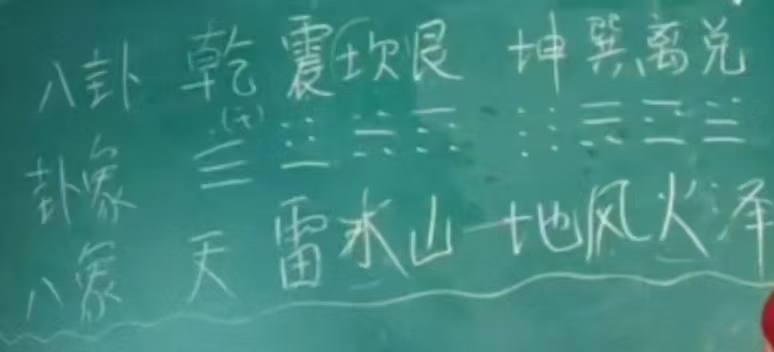 八卦 乾 震 坎 艮 坤 巽 离 兑
卦象 ☰ ☳ ☵ ☶ ☷ ☴ ☲ ☱
八象 天 雷 水 山 地 风 火 泽